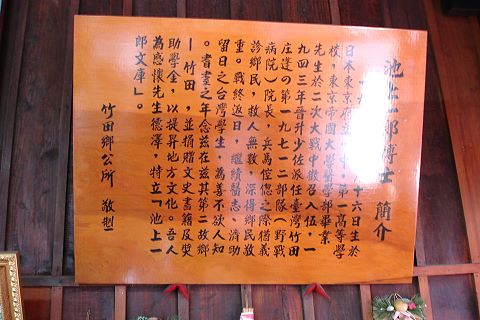 池上一郎博士 簡介
十六日生於
日本東京府立一中，第一高等學
校，東京帝國大學醫學部畢業
先生於二次大戰中徵召入伍，一
九四三年晉升少佐派任臺灣竹田
庄達の第一九七一二部隊（野戰
病院）院長，兵馬倥偬之際猶義
診鄉民，救人無數，深得鄉民敬
重。戰終返日，繼續醫志、濟助
留日之台灣學生，為善不欲人知
。耆耋之年念茲在茲其第二故鄉
—竹田，並捐贈文史書籍及獎
助學金，以提昇地方文化。吾人
為感懷先生德澤，特立「池上一
郎文庫」。
竹田鄉公所 敬製